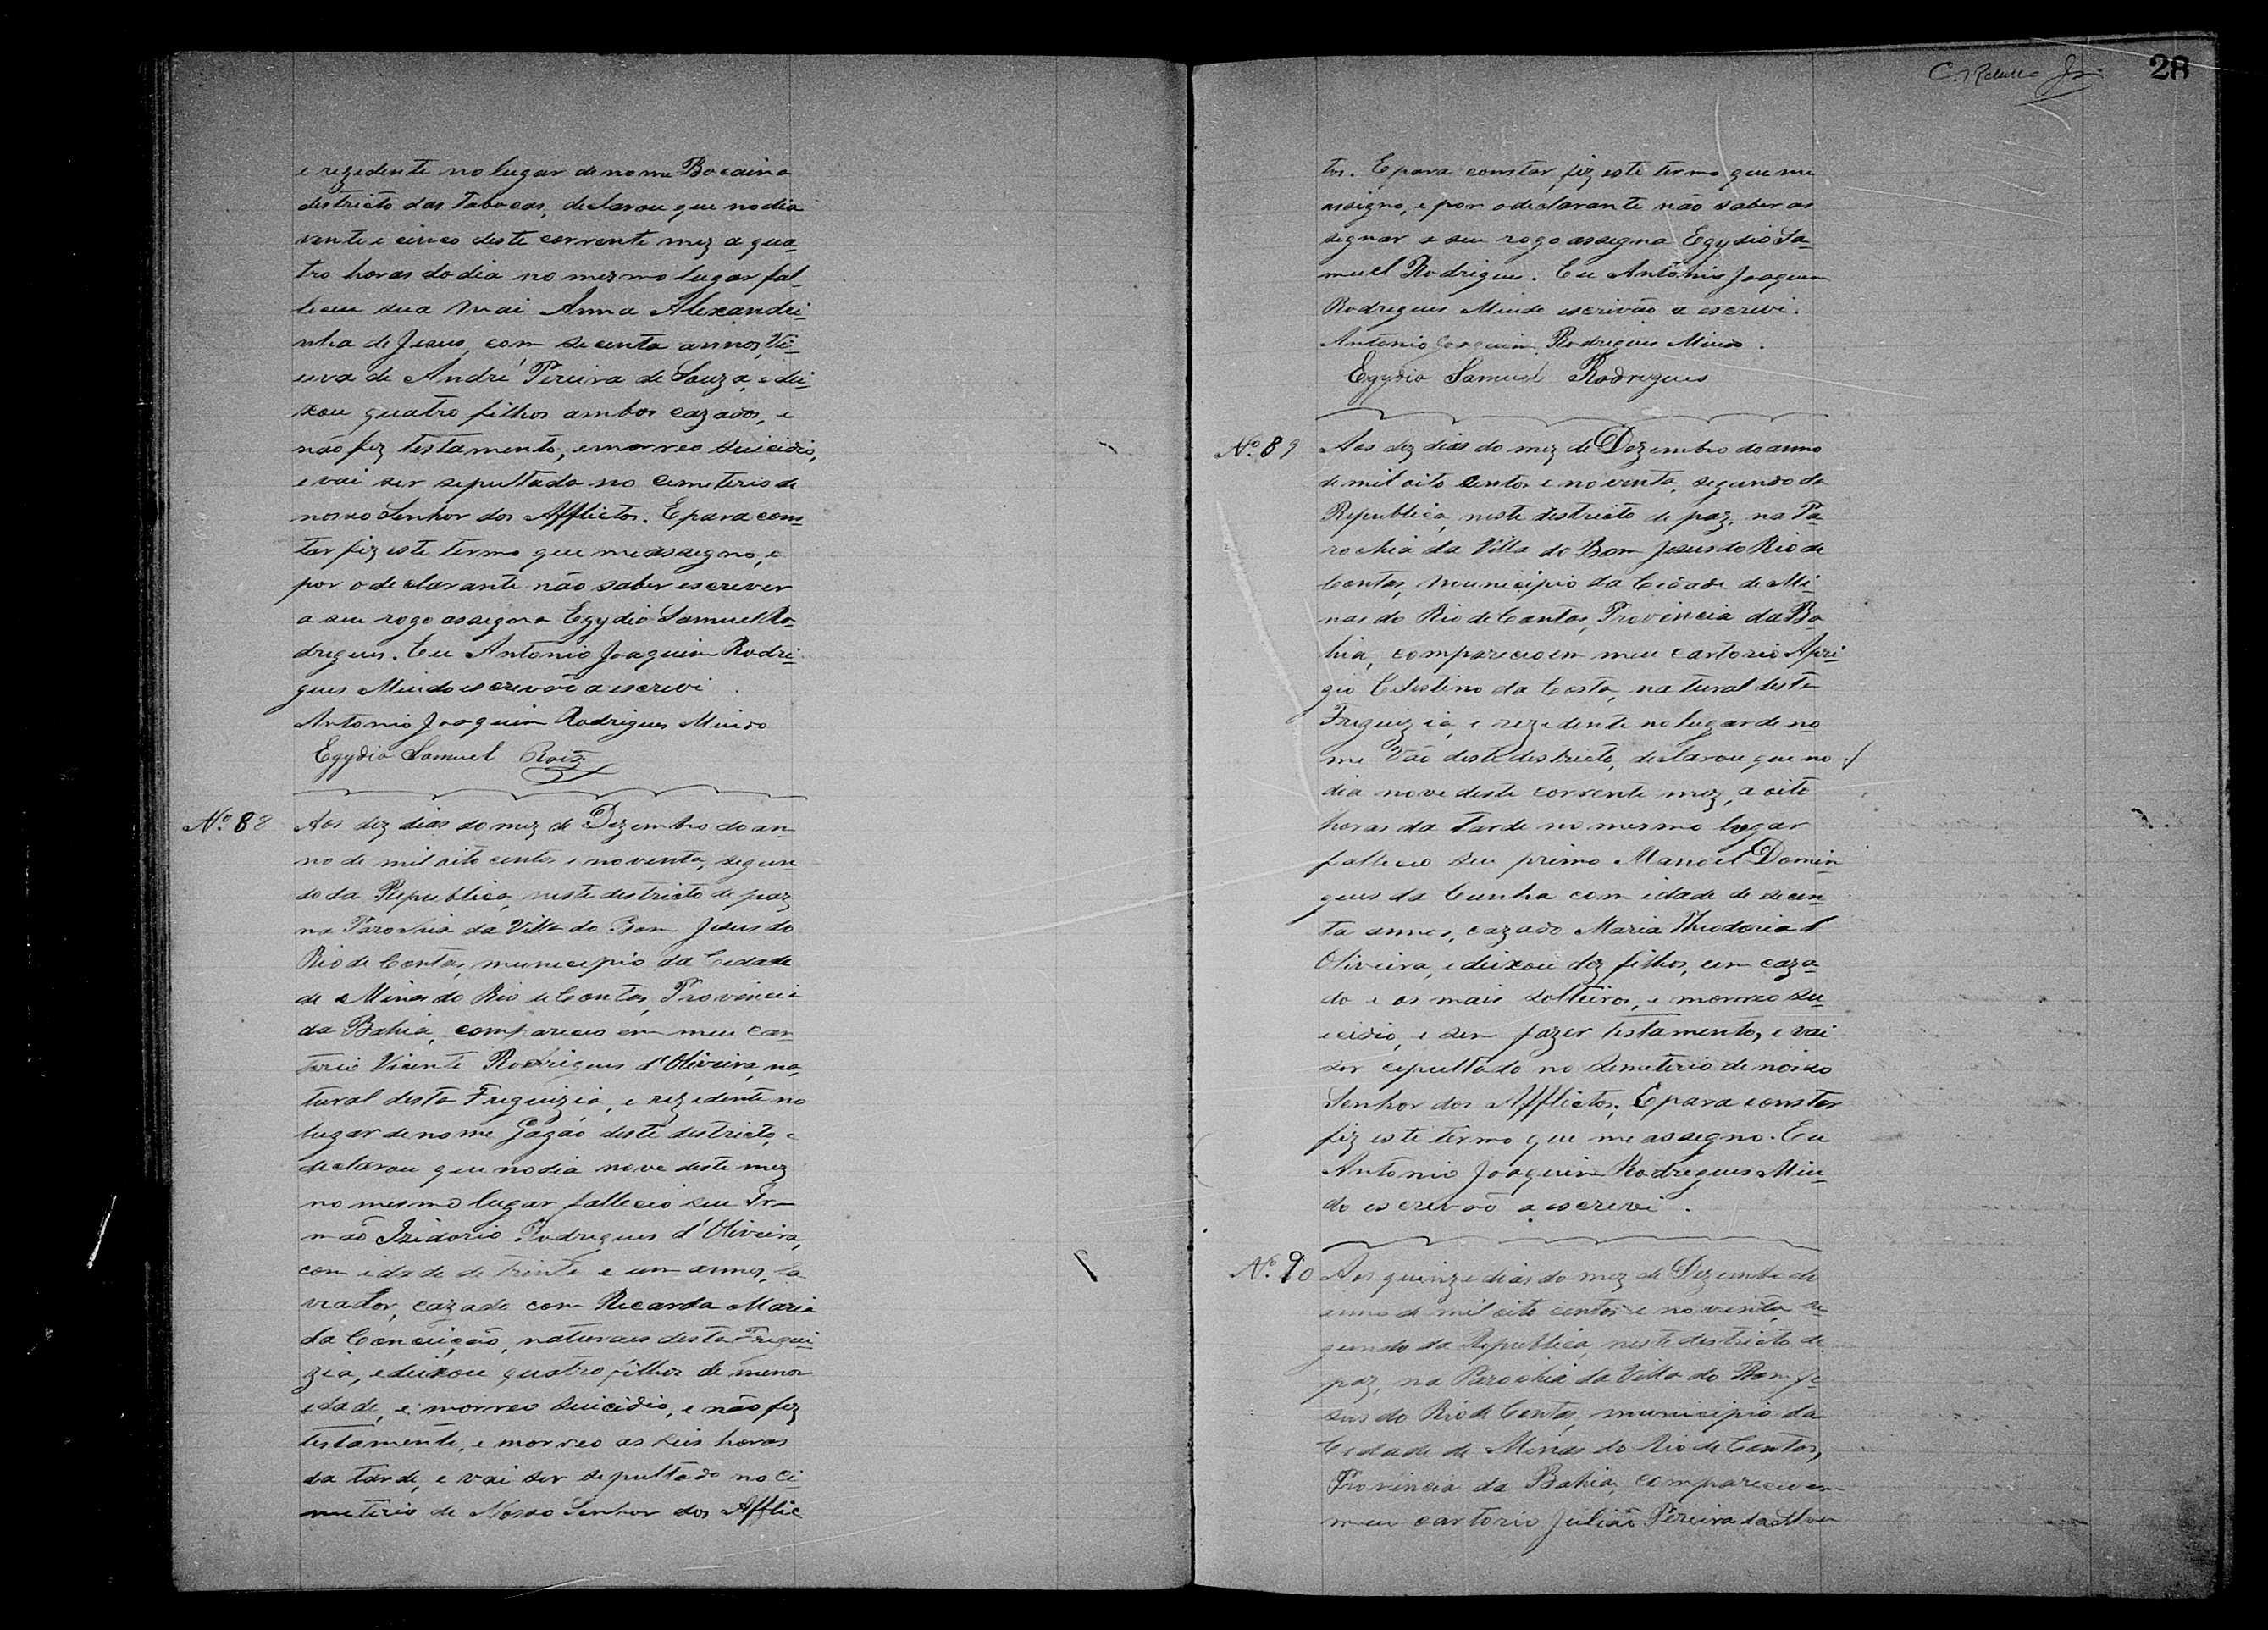 e rezedente no lugar de nome Bocaina
destricto das Tabocas, declarou que no dia
vente e cinco deste corrente mez a qua-
tro horas do dia no mezmo lugar fal-
leceu sua Mai Anna Alexandri-
nha de Jesus, com secenta annos, Vi-
uva de André Pereira de Souza, e dei-
xou quatro filhos ambos cazados, e
não fez testamento, e morreo suicidio,
e vai ser sepultada no cemeterio de
nosso Senhor dos Afflictos. E para cons
tar fiz este termo que me assegno, e
por o declarante não saber escrever
a seu rogo assegna Egydio Samuel Ro-
drigues. Eu Antonio Joaquim Rodri-
gues Miudo escrevão a escrevi.
Antonio Joaquim Rodrigues Miudo
Egydio Samuel Roiz
No. 88 Aos dez dias do mez de Dezembro do an-
no de mil oito centos e noventa, segun-
do da Republica, neste destricto de paz
na Parochia da Villa do Bom Jesus do
Rio de Contas, municipio da Cedade
de Minas do Rio de Contas, Provincia
da Bahia, compareceo em meu car-
torio Vicente Rodrigues d'Oliveira, na-
tural desta Freguizia, e rezedente no
lugar de nome Gagáo deste destricto, e
declarou que no dia nove deste mez
no mesmo lugar falleceo seu Ir-
mão Izidorio Rodrigues d'Oliveira,
com idade de trinta e um annos, La-
vrador, cazado com Ricarda Maria
da Conceição, naturaes desta Fregui-
zia, e deixou quatro filhos de menor
edade, e morreo suicidio, e não fez
testamento, e morreo as seis horas
da tarde, e vai ser sepultado no ci-
meterio de Nosso Senhor dos Afflic
28
tos. E para constar, fiz este termo que me
assigno, e por o declarante não saber as
segnar a seu rogo assegna Egydio Sa-
muel Rodrigues. Eu Antônio Joaquim
Rodrigues Miudo escrivão a escrevi.
Antonio Joaquim Rodrigues Miudo.
Egydio Samuel Rodrigues
No. 89 Aos dez dias do mez de Dezembro do anno
de mil oito centos e noventa, segundo da
Republica, neste destricto de paz, na Pa
rochia da Villa do Bom Jesus do Rio de
Contas, municipio da Cidade de Mi-
nas do Rio de Contas, Provincia da Ba-
hia, compareceo em meu cartorio Apri-
gio Celistino da Costa, natural desta
Freguizia, e rezedente no lugar de no-
me Vão deste destricto, declarou que no
dia nove deste corrente mez, a oito
horas da tarde no mesmo lugar
falleceo seu primo Manoel Domin-
gues da Cunha com idade de secen-
ta annos, cazado Maria Theodoria d
Oliveira, e deixou dez filhos, um caza-
do e os mais solteiros, e morreo su-
icidio, e sem fazer testamento, e vai
ser cepultado no semeterio de nosso
Senhor dos Afflictos. E para constar
fiz este termo que me assegno. Eu
Antonio Joaquim Rodrigues Miu-
do escrevão a escrevi.
No. 90 Aos quinze dias do mez de Dezembro do
anno de mil oito centos e noventa, se-
gundo da Republica, neste destricto de
paz, na Parochia da Villa do Bom Je-
sus do Rio de Contas, municipio da
Cedade de Minas do Rio de Contas,
Provincia da Bahia, compareceo em
meu cartorio Julião Pereira da Silva